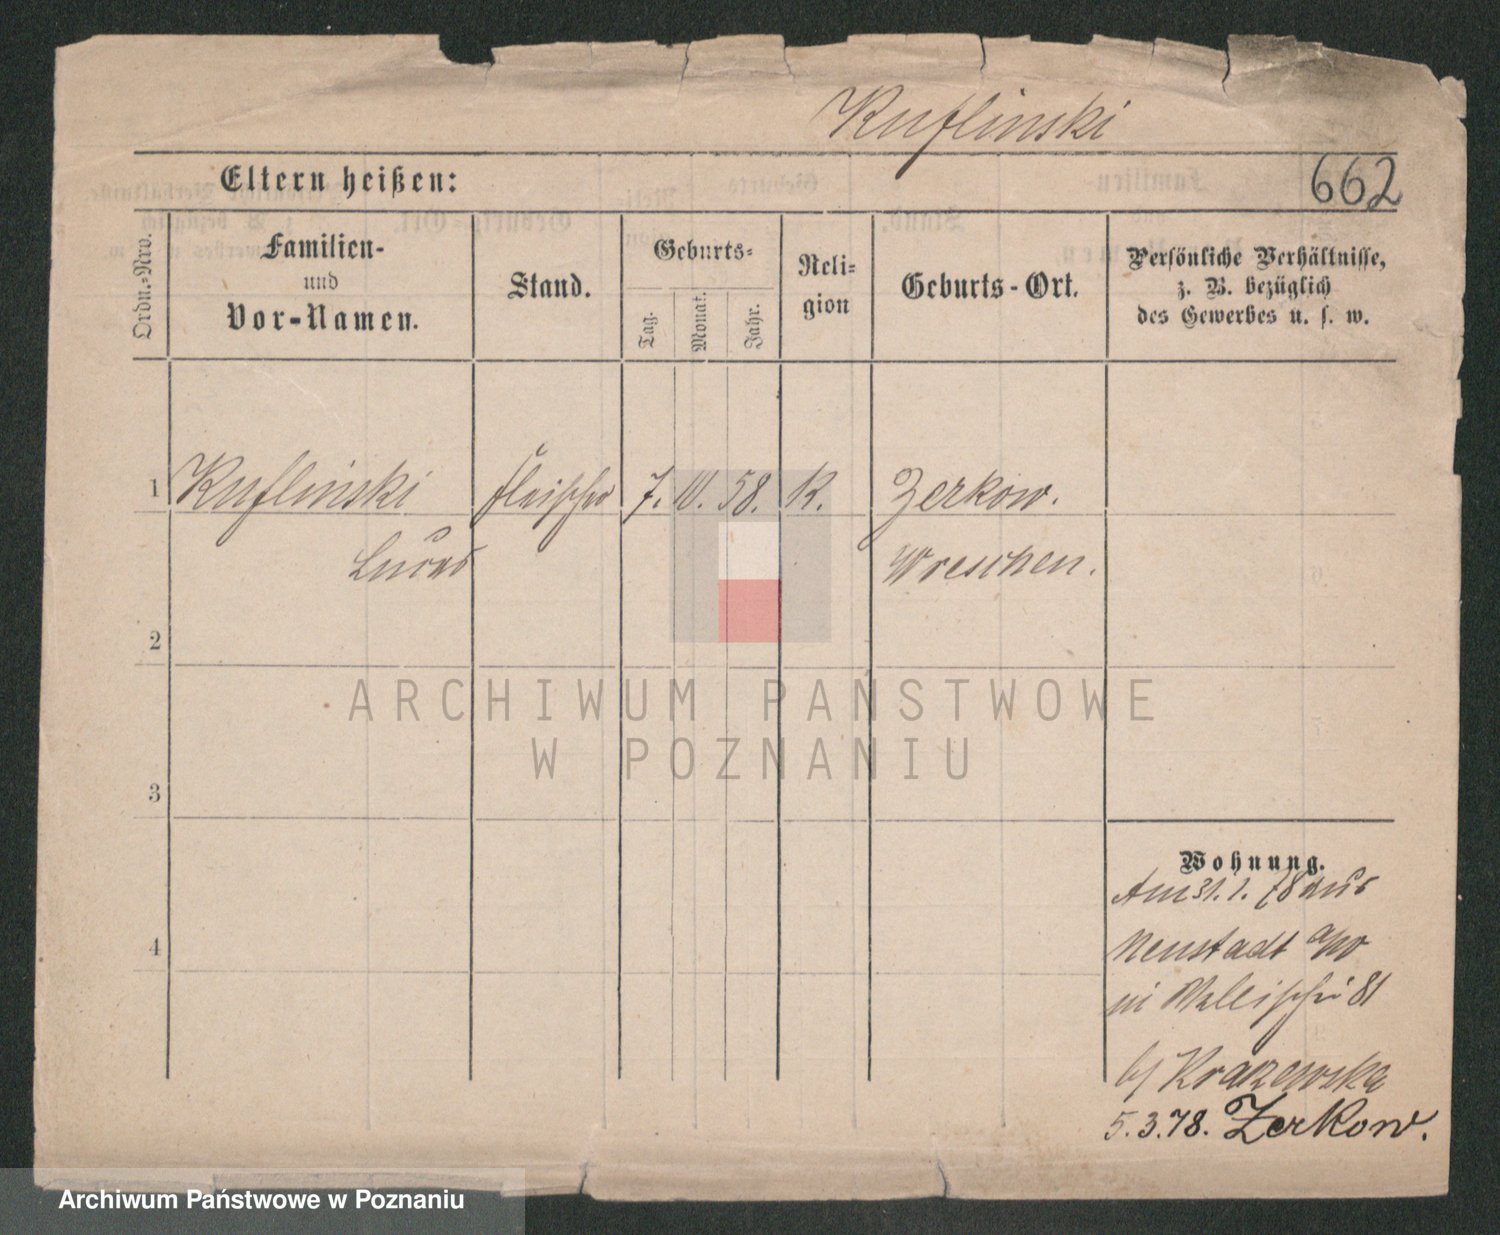 Kuflinski
Eltern heißen:
662
Ordn.-Nro.
Familien-
und
Vor-Namen.
Stand.
Geburts-
Tag.
Monat.
Jahr.
Reli-
gion
Geburts-Ort.
Persönliche Verhältnisse,
z. B. bezüglich
des Gewerbes u. s. w.
1 Kuflinski Fleischer 7. 58. K. Zerkow.
Lucas Wreschen.
2
3
4
ARCHIWUM PAŃSTWOWE
W POZNANIU
Wohnung.
Am 31. 1. 78 aus
Neustadt a/W
Wallischei 81
Krazewska
5.3.78. Zerkow.
Archiwum Państwowe w Poznaniu